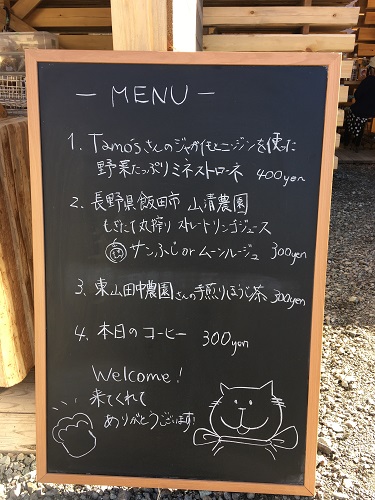 — MENU —
1. Tamo'sさんのジャガイモとニンジンを使った
野菜たっぷりミネストローネ 400yen
2. 長野県飯田市 山清農園
もぎたて丸搾り ストレートリンゴジュース
サンふじorムーンルージュ 300yen
3. 東山田中農園さんの手煎りほうじ茶 300yen
4. 本日のコーヒー 300yen
Welcome!
来てくれて
ありがとうございます!